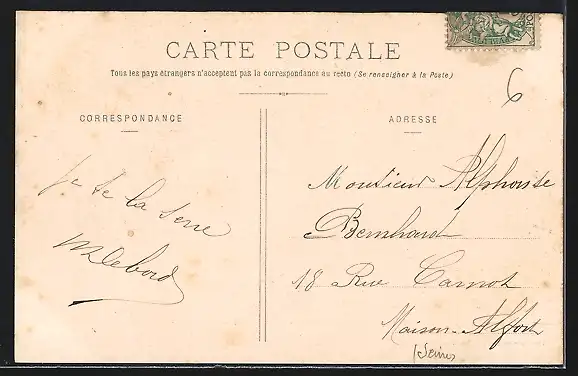 CARTE POSTALE
Tous les pays étrangers n'acceptent pas la correspondance au recto (Se renseigner à la Poste)
6
CORRESPONDANCE
ADRESSE
je te la serre
MDebord
Monsieur Alphonse
Bernhard
18 Rue Carnot
Maison-Alfort
(Seine)